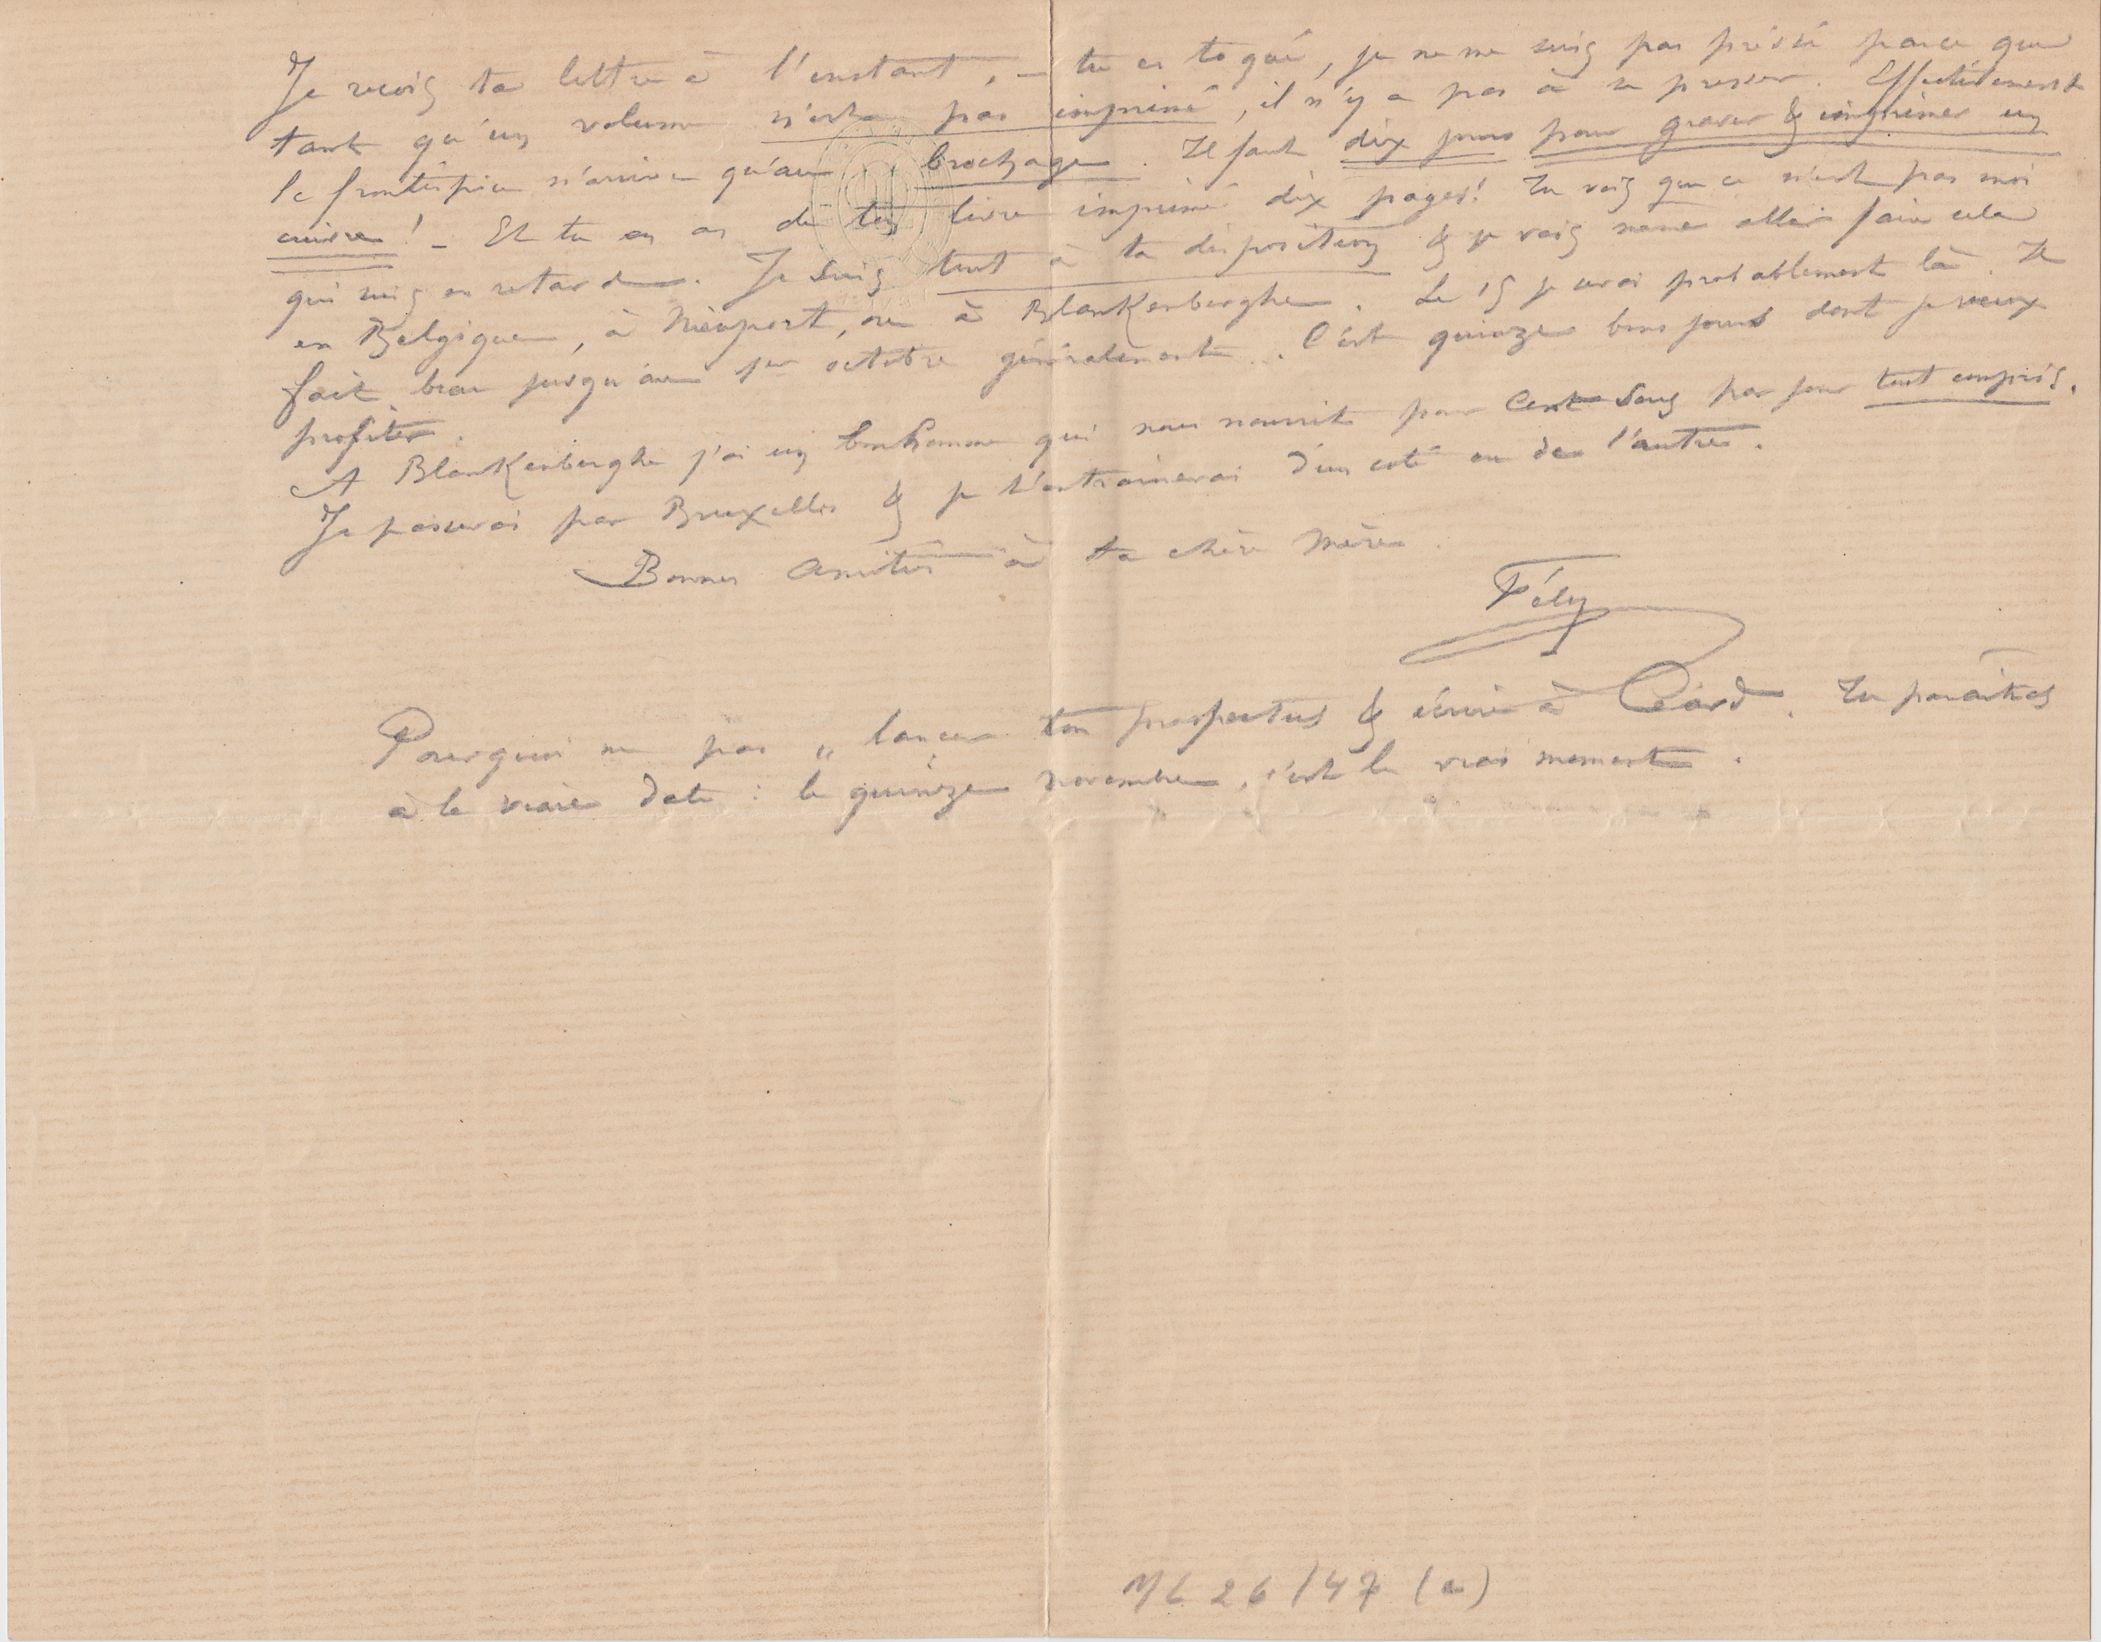 Je reçois ta lettre à l'instant, – tu es toqué, je ne me suis pas pressé parce que
tant qu'un volume n'est pas imprimé, il n'y a pas à se presser. Effectivement
le frontispice n'arrive qu'au brochage. Il faut dix jours pour graver & imprimer un
cuivre! – Et tu en as de ton livre imprimé dix pages! Tu vois que ce n'est pas moi
qui suis en retard. Je suis tout à ta disposition & je vais même aller faire cela
en Belgique, à Nieuport, ou à Blankenberghe. Le 15 je serai probablement là. Il
fait beau jusqu'au 1er octobre généralement. C'est quinze bons jours dont je veux
profiter.
A Blankenberghe j'ai un bonhomme qui nous nourrit pour cent sous par jour tout compris.
Je passerai par Bruxelles & je t'entrainerai d'un coté ou de l'autre.
Bonnes amitiés à ta chère mère.
Fély
Pourquoi ne pas „ lancer ton prospectus & écrire à Céard. Tu paraîtras
à la vraie date : le quinze novembre, c'est le vrai moment.
ML 26/47 (a)